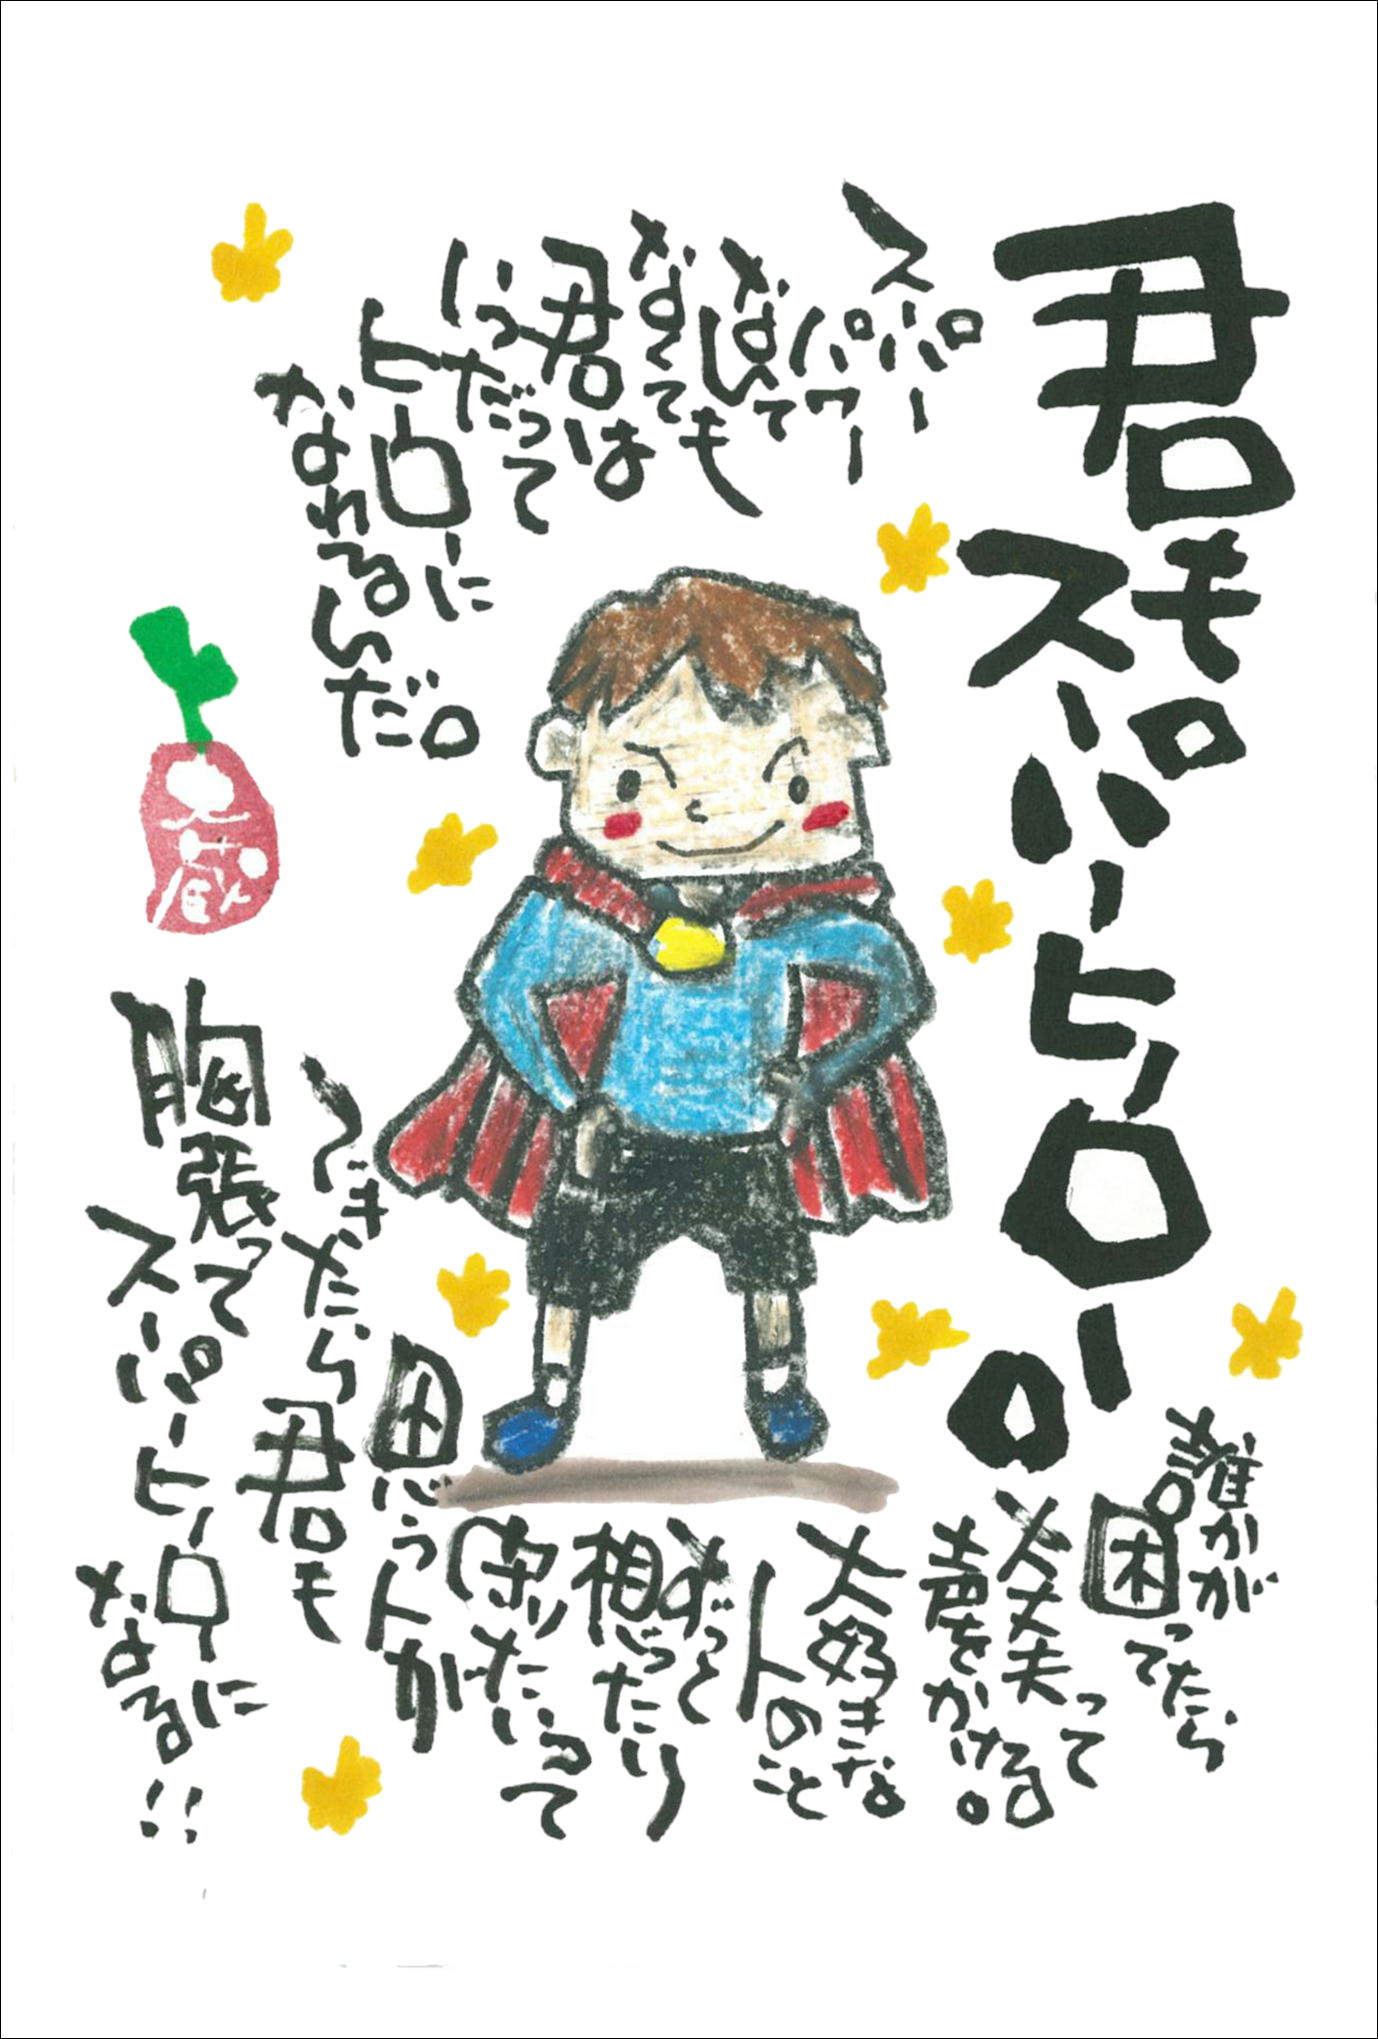 君も
スーパーヒーロー。
スーパー
パワー
なんて
なくても
君は
いつだって
ヒーローに
なれるんだ。
誰かが
困ってたら
大丈夫って
声をかける。
大好きな
人のこと
ずっと
想ったり
守りたいって
思う人が
できたら
君も
胸張って
スーパーヒーローに
なる!!